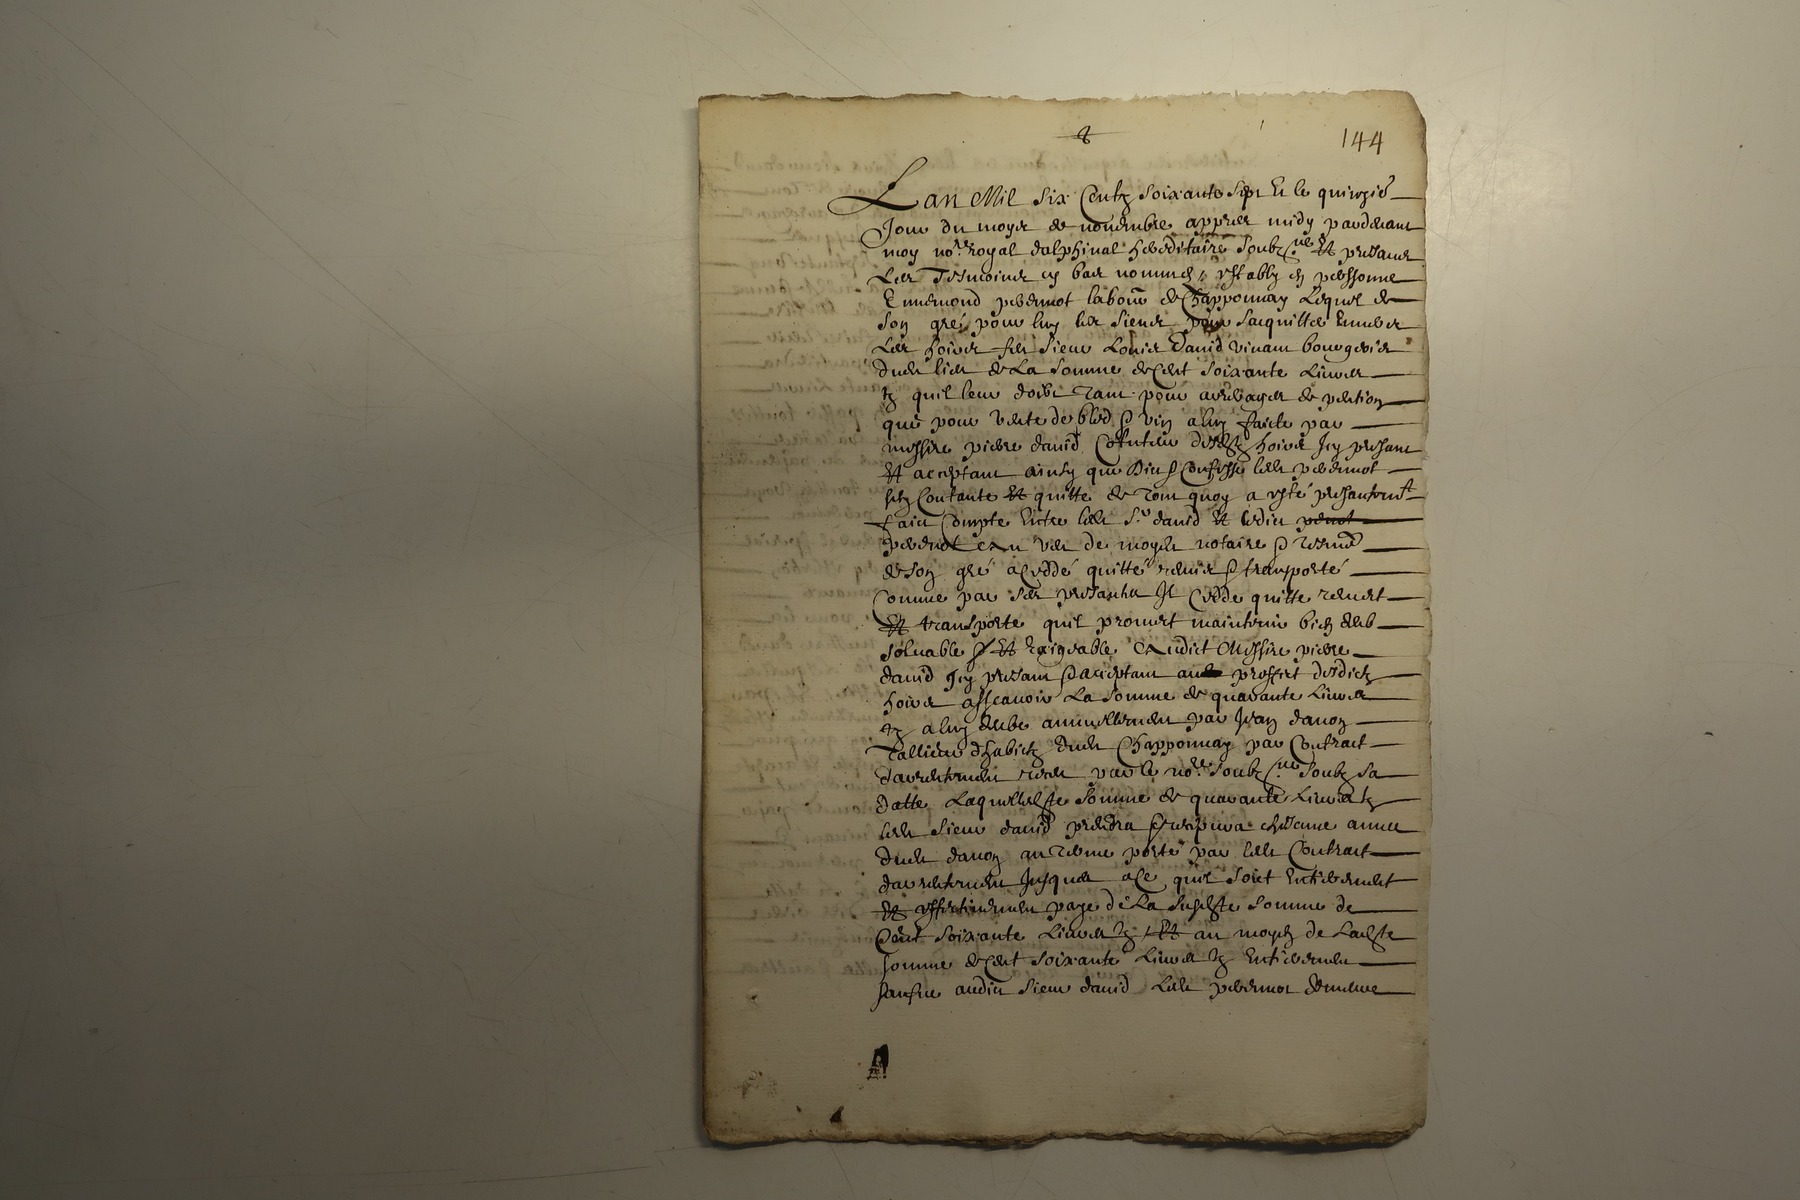 144
Lan Mil Six Centz Soixante Sept Et le quinzie
Jour du moys de novembre appres midy pardevant
moy nore Royal dalphinal hereditaire Soubzne Et presans
Les Tesmoins cy bas nommés establý en personne
Ennemond pevernot labour de Chapponnay Lequel de
Son gré pour luy les Siens pour Sacquitter Envers
Les hoirs Sieur Louis David vivant bourgeois
dud de La Somme de Cent Soixante Livres
tz quil leur doibt Tant pour arrerages de pention
que pour Vente de bled & vin a luy faicte par
messire pierre david desdtz hoirs Icy presant
Et acceptant ainsy que & Confesse ledt pevernot
Contante Et quitte de Tout quoy a esté presantemt
faict Compte Entre ledt Sr david Et ledict
pevernot notaire &
de Son gré a Ceddé quitté remis & transporté
Comme par Ses presantes Il Cedde quitte remet
Et transporte quil promet maintenir bien deub
Solvable & Et Exigeable Audict Messire pierre
david Icy presant & acceptant au proffict desdictz
hoirs assçavoir La Somme de quarante Livres
tz a luy deube annuellement par Jean danon
dhabictz dudt Chapponnay par Contract
darrentement receu par le nore Soubzne Soubz Sa
datte Laquelle Somme de quarante Livres tz
ledt Sieur david prendra & annee
dudt danon au Terme porté par ledt Contract
darrentement Jusques a Ce quil Soict Entierement
Et effectivement paye de La Susdte Somme de
Cent Soixante Livres tz Et au moyen de Ladte
Somme de Cent Soixante Livres tz Entierement
audict Sieur david Ledt pevernot demeure